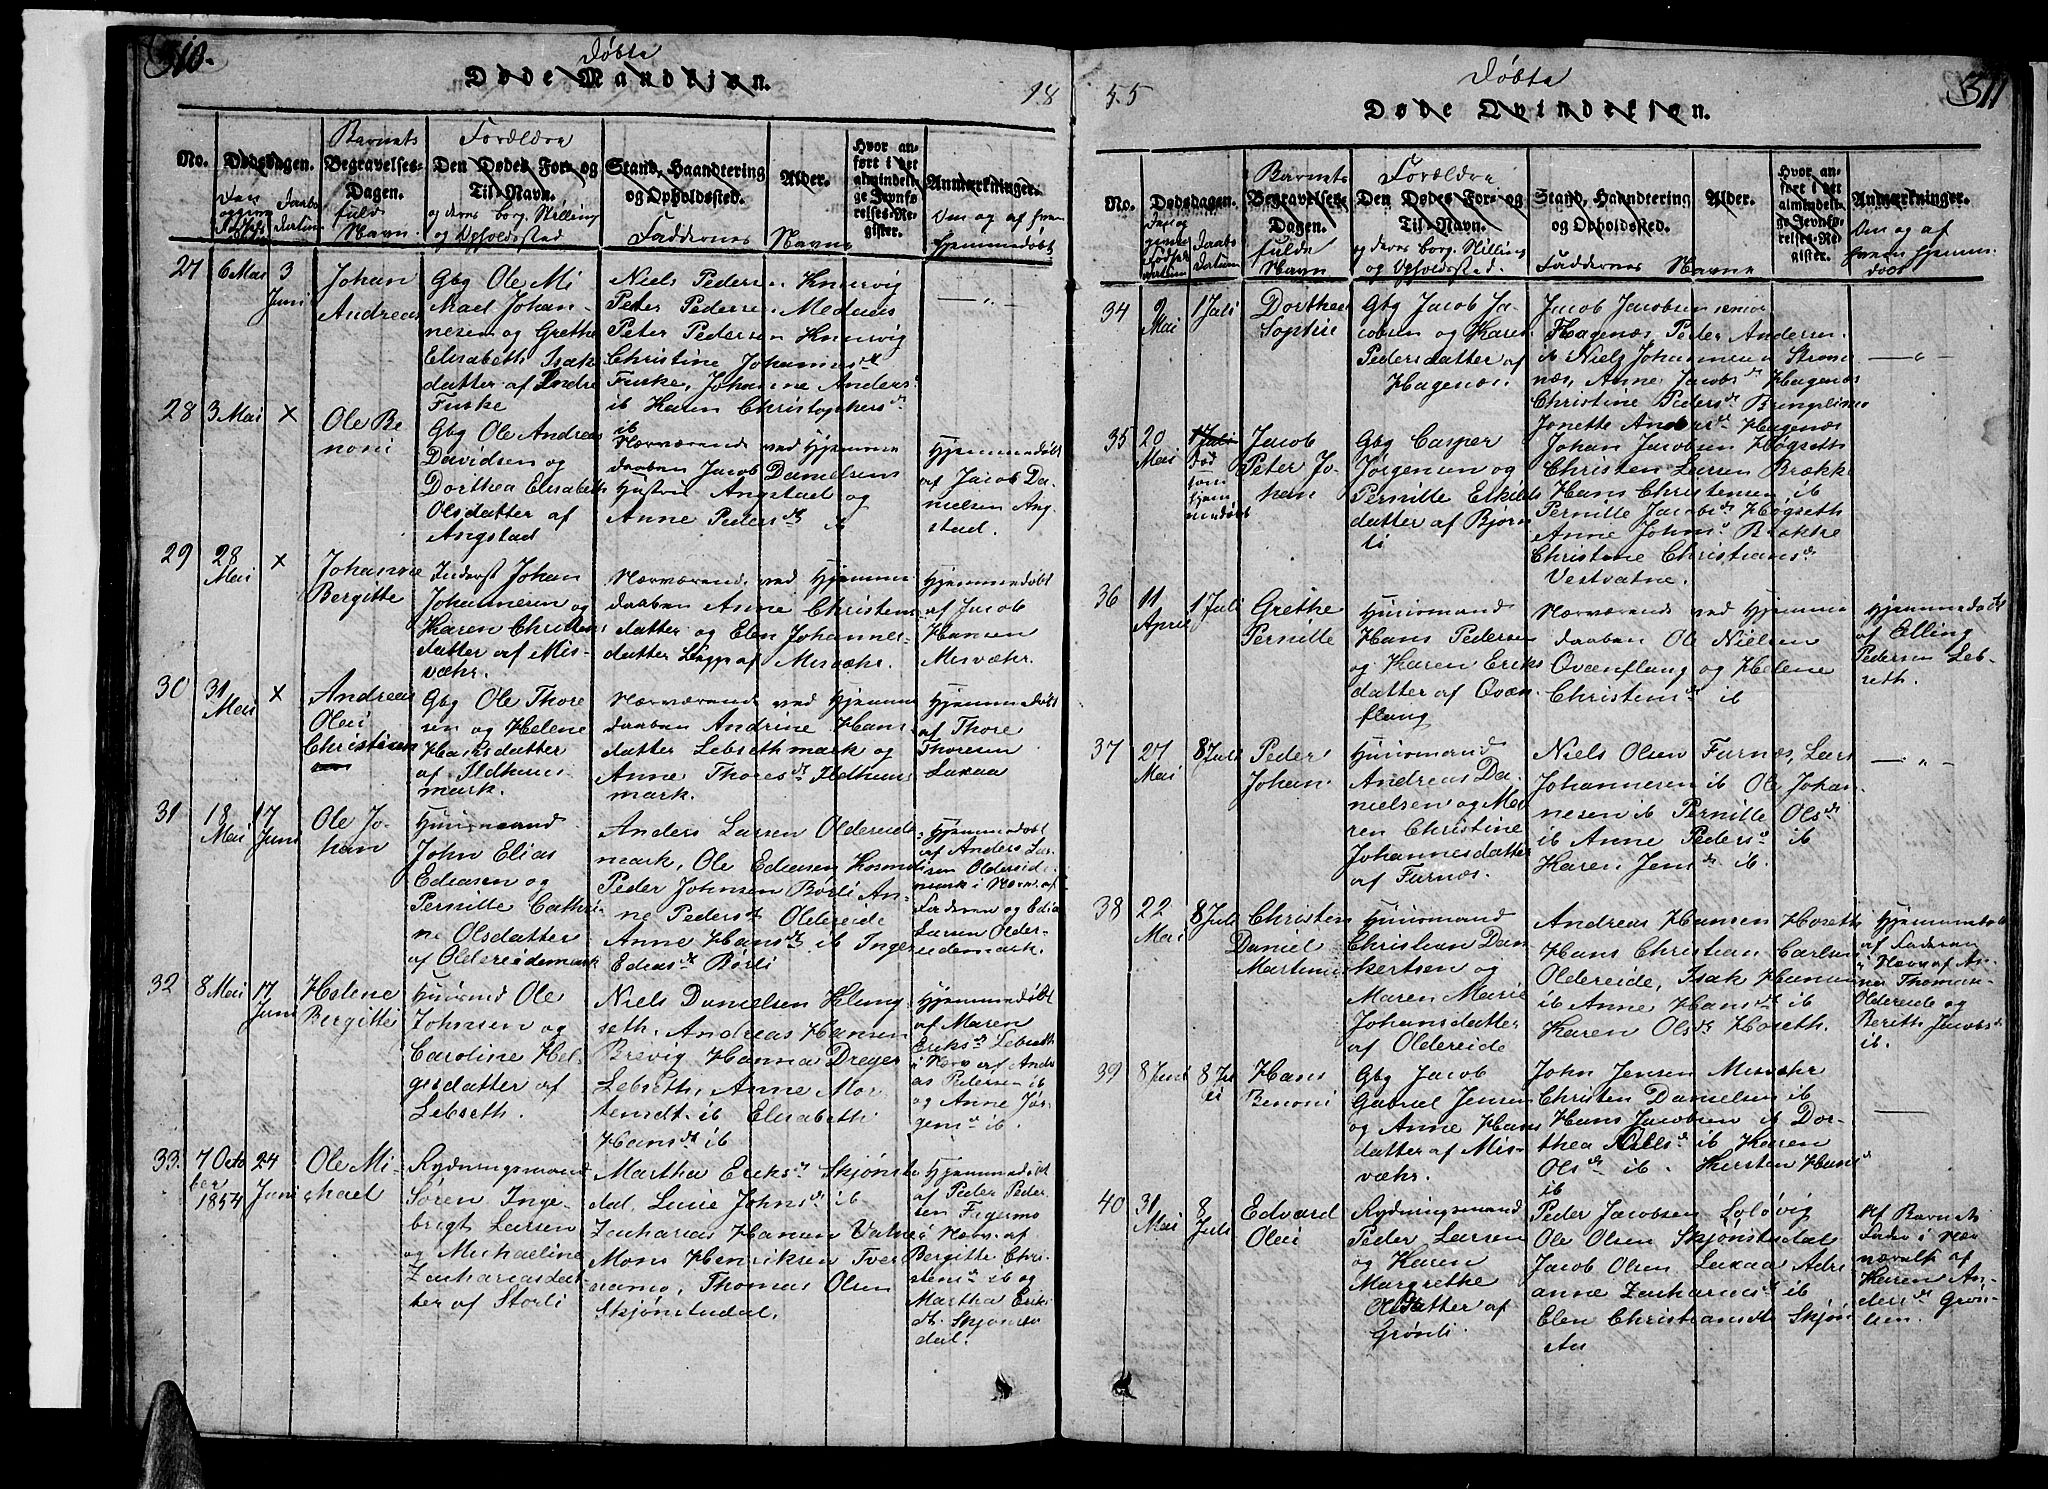 310.
Døbte
Døde Mandkjøn.
18
No.
Dødsdagen.
Barnets
Begravelses-
Dagen.
fulde
Navn.
Forældre
Den Dødes For- og
Til-Navn.
og deres borg. Stilling
og Opholdssted
Stand, Haandtering
og Opholdssted.
Faddernes
Alder.
Navne
Hvor an-
ført i det
almindeli-
ge Jevnfø-
relses-Re-
gister.
Anmærkninger.
Om og af hvem
hjemmedøbt
27
6 Mai
3
Juni
Johan
Andreas
Gbg Ole Mi
kael Johan-
nesen og Grethe
Elisabeth Isak
datter af Indre
Fuske
Niels Pedersen Knervig
Peter Pedersen Medaas
Peter Pedersen Knervig
Christine Johannesdt
Fuske, Johanne Anders
ib Karen Christophersdt
ib
— " —
28
3 Mai
×
Ole Be
noni
Gbg Ole Andreas
Davidsen og
Dorthea Elisabeth
Olsdatter af
Angstad
Nærværende ved Hjemme
daaben Jacob Danielsens
Hustru Angstad og
Anne Pedersdt ib
Hjemmedøbt
af Jacob Da
nielsen Ang
stad.
29
28
Mai
×
Johanne
Bergitte
Inderst Johan
Johannesen og
Karen Christens
datter af Mis-
væhr.
Nærværende ved Hjemme
daaben Anne Christens
datter og Elen Johannes-
datter Lapp af Misvæhr.
Hjemmedøbt
af Jacob
Hansen
Misvæhr.
30
31
Mai
×
Andreas
Olai
Christian
Gbg Ole Thore
sen og Helene
Hansdatter
af Ildhus
mark.
Nærværende ved Hjemme
daaben Andrine Hans
datter Lebsethmark og
Anne Thoresdt Ildhus
mark.
Hjemmedøbt
af Thore
Thoresen
Laxaa
31
18
Mai
17
Juni
Ole Jo-
han
Huusmand
John Elias
Ediasen og
Pernille Cathri
ne Olsdatter
af Oldereidemark
Anders Larsen Oldereide
mark, Ole Ediasen Kosmo
Peder Johnsen Børli An-
ne Pedersdt Oldereide
Anne Hansdt ib Inger
Ediasdt Børli
Hjemmedøbt
af Anders Lar
sen Oldereide
mark i Nærv. af
Faderen og Edias
Larsen Older-
eidemark.
32
8 Mai
17
Juni
Helene
Bergitte
Huusmd Ole
Johnsen og
Caroline Hel-
gesdatter af
Lebseth.
Niels Danielsen Klung
seth, Andreas Hansen
Brevig Hannas Dreyer
Lebseth, Anne Mor-
tensdt ib Elisabeth
Hansdt ib
Hjemmedøbt
af Maren
Eriksdt Lebseth
i Nærv af Andre
as Pedersen ib
og Anne Jør-
gensdt ib.
33.
7 Octo
ber
1854
24
Juni
Ole Mi-
chael
Rydningsmand
Søren Inge-
brigt Larsen
og Michaeline
Zachariasdat-
ter af Storli
Martha Eriksdt Skjønsta
dal, Lucie Johnsdt ib
Zacharias Hansen Vatne
Mons Henriksen Tver
aamo, Thomas Olsen
Skjønstadal.
Hjemmedøbt
af Peder Peder
sen Fagermo
i Nærv. af
Bergitte Chri
stensdt ib og
Martha Eriks
dt. Skjønsta
dal.
311
Døbte
55
Døde Qvindekjøn.
No.
Dødsdagen.
Daabs
datum
Barnets
Begravelses-
Dagen.
fulde
Navn
Forældre
Den Dødes For- og
Til-Navn.
og deres borg. Stilling
og Opholdssted.
Stand, Haandtering
og Opholdssted.
Faddernes
Alder.
Navne
Hvor an-
ført i det
almindeli-
ge Jevnfø-
relses-Re-
gister.
Anmærkninger.
Om og af
hvem hjemme
døbt
34
9
Mai
1 Juli
Dorthea
Sophie
Gbg Jacob Ja-
cobsen og Karen
Pedersdatter af
Hagenæs.
Jacob Jacobsen senior
Hagenæs Peder Andersen
ib Niels Johannesen Strom
næs, Anne Jacobsdt Hagenæs
Christine Pedersdt Bringslimo
Jonette Andersdt Hagenæs
— " —
35
20
Mai
1 Juli
død
som
hjem
medøbt
Jacob
Peter Jo-
han
Gbg Casper
Jørgensen og
Pernille Eskilds
datter af Bjørn
li
Johan Jacobsen Høgseth
Christen Larsen Brække
Hans Christensen, ib
Pernille Jacobsdt Høgseth
Anne Johnsd Brække
Christine Christiansdt
Vestvatne.
36
11
April
1 Juli
Grethe
Pernille
Huusmand
Hans Pedersen
og Karen Eriks
datter af Qvæn
flaug
Nærværende ved Hjemme
daaben Ole Nielsen
Qvænflaug og Helene
Christensdt ib
Hjemmedøbt
af Elling
Pedersen Leb-
seth.
37
27
Mai
8 Juli
Peder
Johan
Huusmand
Andreas Da-
nielsen og Ma-
ren Christine
Johannesdatter
af Furnæs.
Niels Olsen Furnæs, Lars
Johannesen ib Ole Johan-
nesen ib Pernille Olsdt
ib Anne Pedersd ib
Karen Jensdt ib.
— " —
38
22
Mai
8 Juli
Christen
Daniel
Martinus
Huusmand
Christian Dan
kertsen og
Maren Marie
Johansdatter
af Oldereide
Andreas Hansen Hoseth
Hans Christian Carlsen
Oldereide, Isak Hansen
ib Anne Hansdt ib
Karen Olsdt Hoseth.
Hjemmedøbt
af Faderen
i Nærv af An-
ne Thomasdt
Oldereide og
Berith Jacobsdt
ib.
39
8 Juni
8 Ju
li
Hans
Benoni
Gbg Jacob
Gabriel Jensen
og Anne Hans
datter af Mis-
væhr.
John Jensen Misvæhr
Christen Danielsen ib
Hans Jacobsen ib Dor-
thea Nilsdt ib Karen
Olsdt ib. Kirsten Hansdt
ib
—
40
31
Mai
8
Juli
Edvard
Olai
Rydningsmand
Peder Larsen
og Karen
Margrethe
Olsdatter af
Grønli.
Peder Jacobsen Soløvig
Ole Olsen Skjønstadal
Jacob Olsen Laxaa Adri
anne Zachariasdt ib
Elen Christiansdt Skjøn
staa
Af Barnets
Fader i Nær
værelse af
Karen An-
dersdt Grøn-
lien.